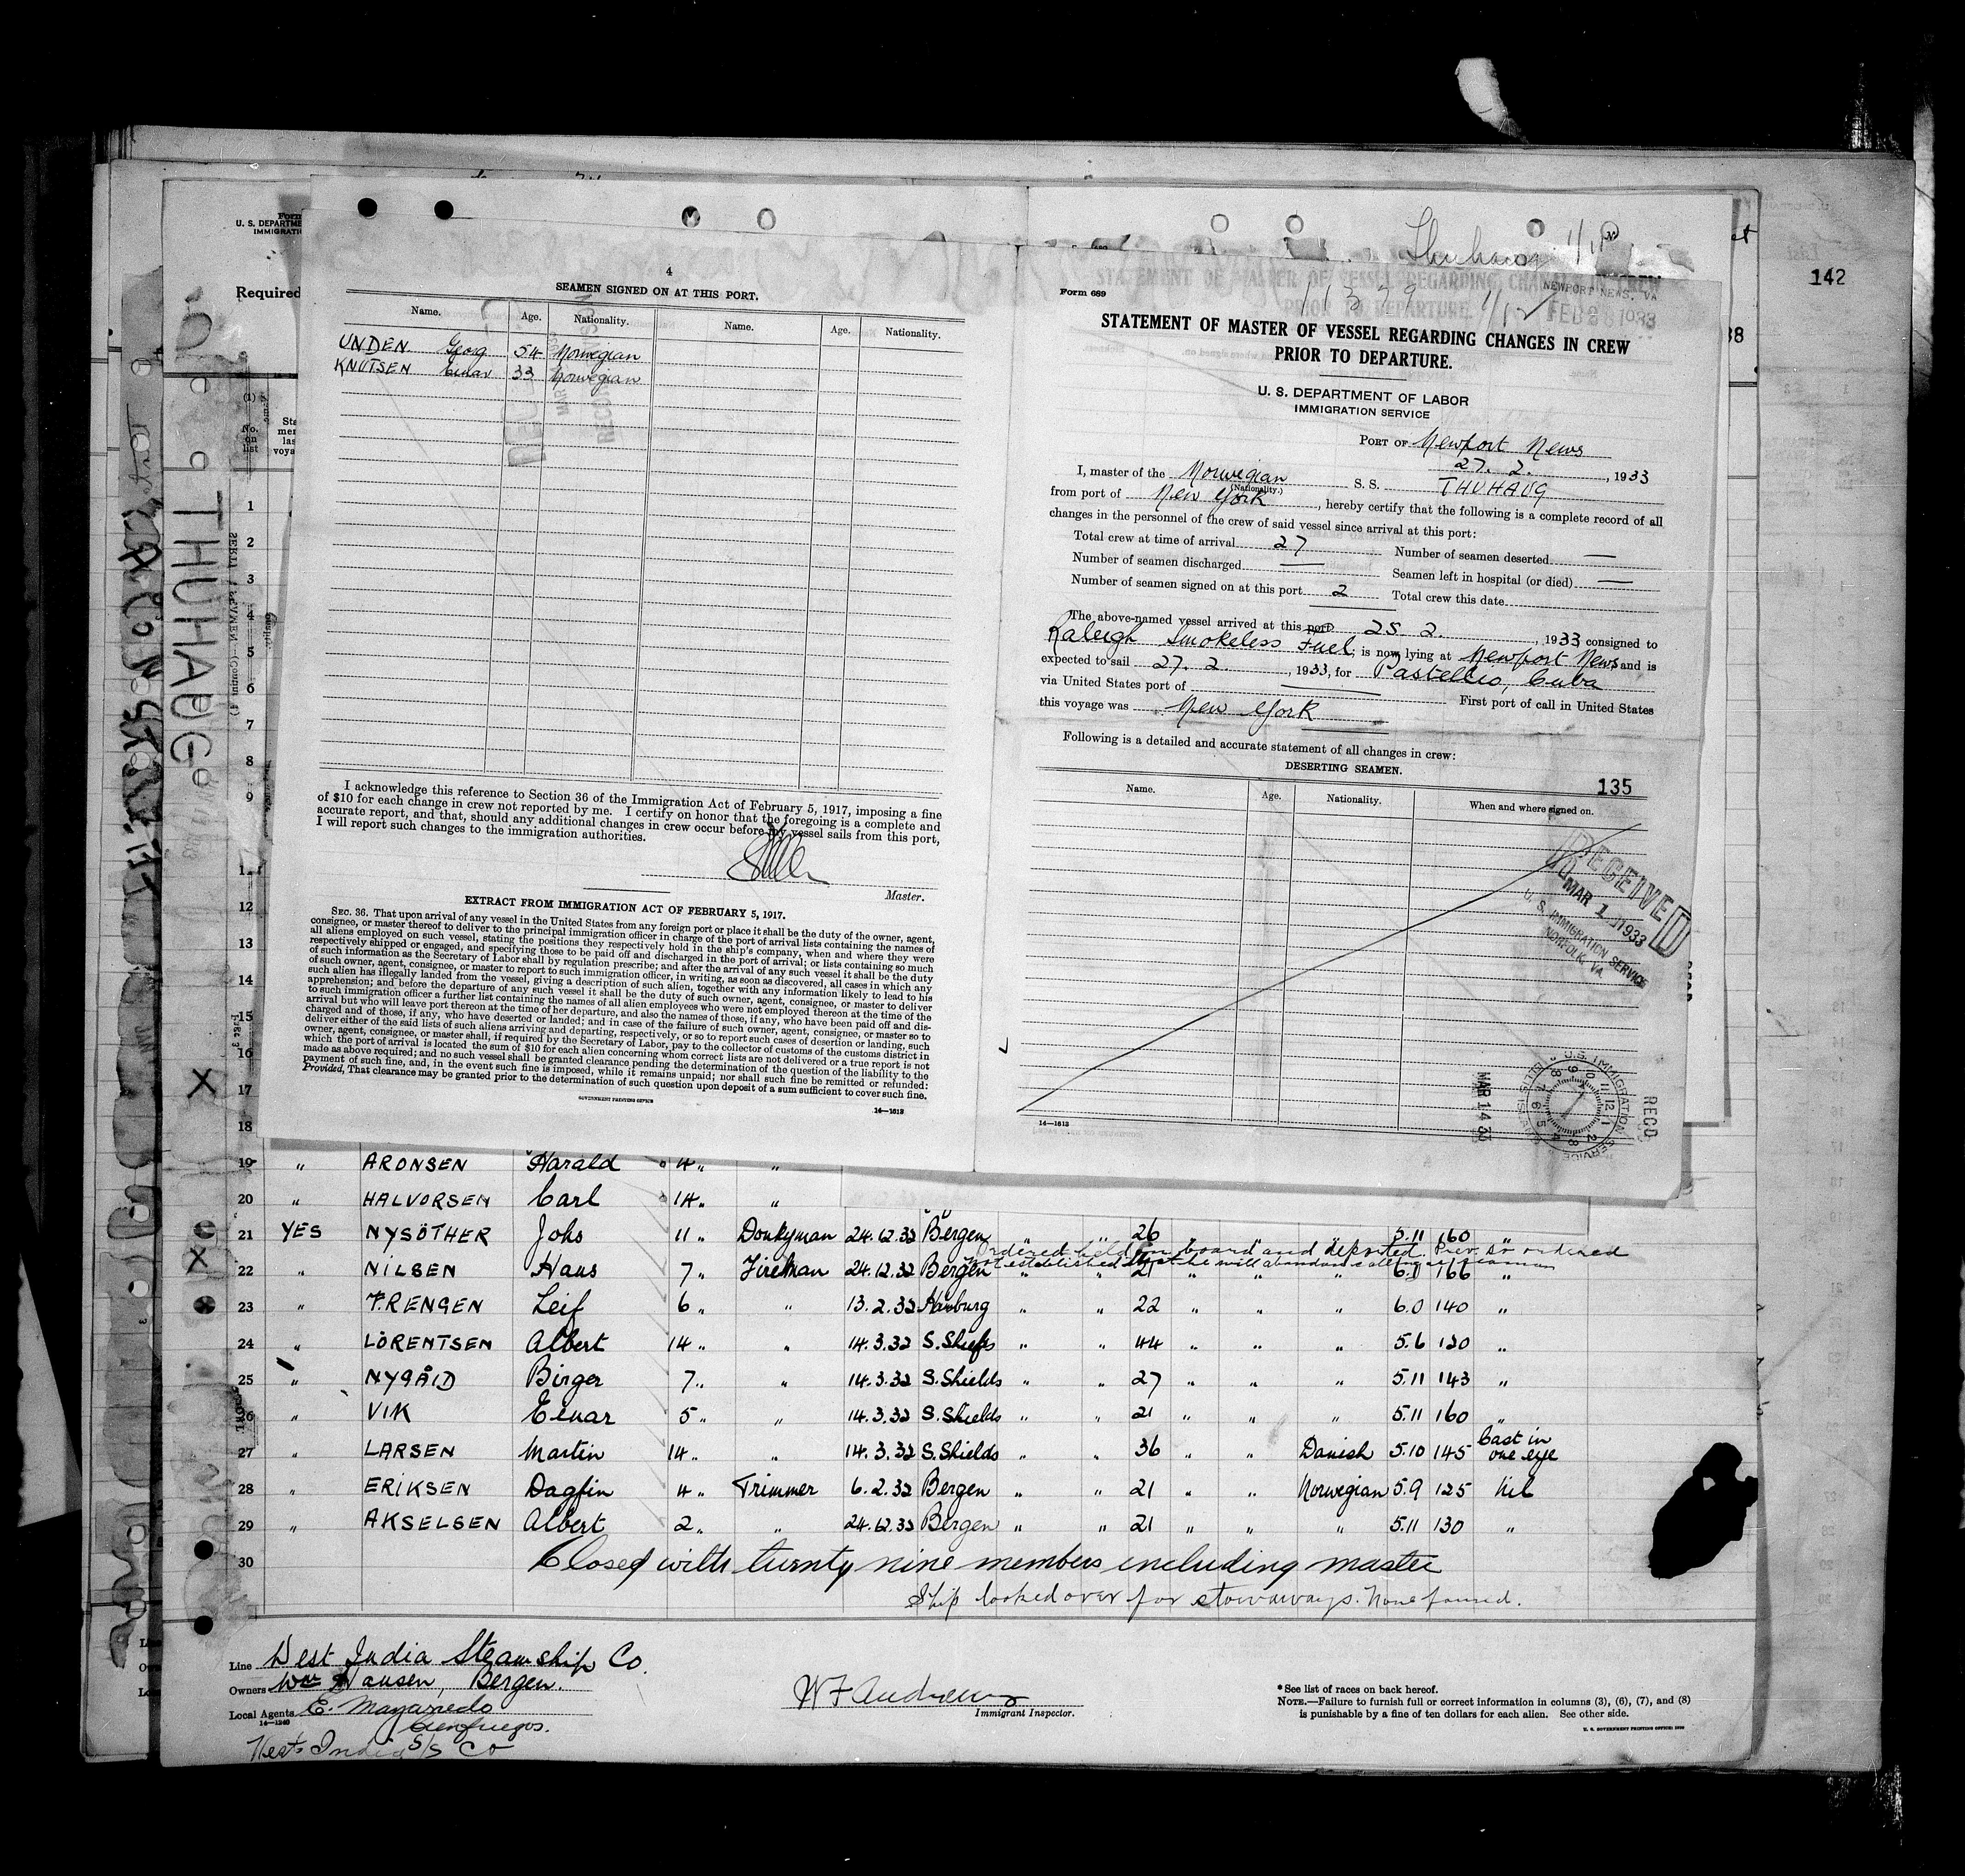 142
Form
U. S. DEPARTME
IMMIGRATI
Required
THUHAUG
4
SEAMEN SIGNED ON AT THIS PORT.
Name. Age. Nationality. Name. Age. Nationality.
UNDEN Georg 54 Norwegian
KNUTSEN Einar 33 Norwegian
I acknowledge this reference to Section 36 of the Immigration Act of February 5, 1917, imposing a fine
of $10 for each change in crew not reported by me. I certify on honor that the foregoing is a complete and
accurate report, and that, should any additional changes in crew occur before my vessel sails from this port,
I will report such changes to the immigration authorities.
Master.
EXTRACT FROM IMMIGRATION ACT OF FEBRUARY 5, 1917.
SEC. 36. That upon arrival of any vessel in the United States from any foreign port or place it shall be the duty of the owner, agent,
consignee, or master thereof to deliver to the principal immigration officer in charge of the port of arrival lists containing the names of
all aliens employed on such vessel, stating the positions they respectively hold in the ship's company, when and where they were
respectively shipped or engaged, and specifying those to be paid off and discharged in the port of arrival; or lists containing so much
of such information as the Secretary of Labor shall by regulation prescribe; and after the arrival of any such vessel it shall be the duty
of such owner, agent, consignee, or master to report to such immigration officer, in writing, as soon as discovered, all cases in which any
such alien has illegally landed from the vessel, giving a description of such alien, together with any information likely to lead to his
apprehension; and before the departure of any such vessel it shall be the duty of such owner, agent, consignee, or master to deliver
to such immigration officer a further list containing the names of all alien employees who were not employed thereon at the time of the
arrival but who will leave port thereon at the time of her departure, and also the names of those, if any, who have been paid off and dis-
charged and of those, if any, who have deserted or landed; and in case of the failure of such owner, agent, consignee, or master so to
deliver either of the said lists of such aliens arriving and departing, respectively, or so to report such cases of desertion or landing, such
owner, agent, consignee, or master shall, if required by the Secretary of Labor, pay to the collector of customs of the customs district in
which the port of arrival is located the sum of $10 for each alien concerning whom correct lists are not delivered or a true report is not
made as above required; and no such vessel shall be granted clearance pending the determination of the question of the liability to the
payment of such fine, and, in the event such fine is imposed, while it remains unpaid; nor shall such fine be remitted or refunded:
Provided, That clearance may be granted prior to the determination of such question upon deposit of a sum sufficient to cover such fine.
GOVERNMENT PRINTING OFFICE
14—1613
Thuhaug
Form 689
NEWPORT NEWS, VA
FEB 28 1933
STATEMENT OF MASTER OF VESSEL REGARDING CHANGES IN CREW
PRIOR TO DEPARTURE.
U. S. DEPARTMENT OF LABOR
IMMIGRATION SERVICE
PORT OF Newport News
27. 2., 1933
I, master of the Norwegian S. S. THUHAUG
(Nationality.)
from port of New York, hereby certify that the following is a complete record of all
changes in the personnel of the crew of said vessel since arrival at this port:
Total crew at time of arrival 27 Number of seamen deserted —
Number of seamen discharged — Seamen left in hospital (or died) —
Number of seamen signed on at this port 2 Total crew this date
The above-named vessel arrived at this port 25. 2., 1933 consigned to
Raleigh Smokeless Fuel; is now lying at Newport News and is
expected to sail 27. 2., 1933, for Pastellio, Cuba
via United States port of — First port of call in United States
this voyage was New York
Following is a detailed and accurate statement of all changes in crew:
DESERTING SEAMEN.
135
Name. Age. Nationality. When and where signed on.
RECEIVED
MAR 1 1933
U. S. IMMIGRATION SERVICE
NORFOLK, VA.
MAR 14 33
U.S. IMMIGRATION SERVICE
RECD
14—1613
19 " ARONSEN Harald 4 " "
20 " HALVORSEN Carl 14 " "
21 YES NYSÖTHER Johs 11 " Donkyman 24.12.32 Bergen " " 26 5.11 160 "
Ordered held on board and deported. Prev. so ordered
not established that he will abandon calling as seaman
22 " NILSEN Hans 7 " Fireman 24.12.32 Bergen " " 21 " " " 6.1 166 "
23 " FRENGEN Leif 6 " " 13.2.32 Hamburg " " 22 " " " 6.0 140 "
24 " LÖRENTSEN Albert 14 " " 14.3.32 S. Shields " " 44 " " " 5.6 120 "
25 " NYGÅRD Birger 7 " " 14.3.32 S. Shields " " 27 " " " 5.11 143 "
26 " VIK Einar 5 " " 14.3.32 S. Shields " " 21 " " " 5.11 160 "
27 " LARSEN Martin 14 " " 14.3.32 S. Shields " " 36 " " Danish 5.10 145 Cast in one eye
28 " ERIKSEN Dagfin 4 " Trimmer 6.2.32 Bergen " " 21 " " Norwegian 5.9 125 Nil
29 " AKSELSEN Albert 2 " " 24.12.32 Bergen " " 21 " " " 5.11 130 "
30 Closed with twenty nine members including master
Ship looked over for stowaways. None found.
Line West India Steamship Co.
Owners Wm Hansen, Bergen.
Local Agents E. Mayarredo
Cienfuegos.
14—1240
West India S/S Co
W F Andrews
Immigrant Inspector.
* See list of races on back hereof.
NOTE.—Failure to furnish full or correct information in columns (3), (6), (7), and (8)
is punishable by a fine of ten dollars for each alien. See other side.